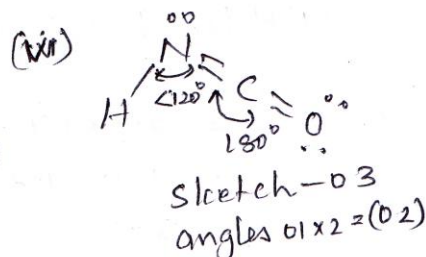 (vii)
N
H
<120°
C
180°
O
Sketch-03
angles 01×2=(02)